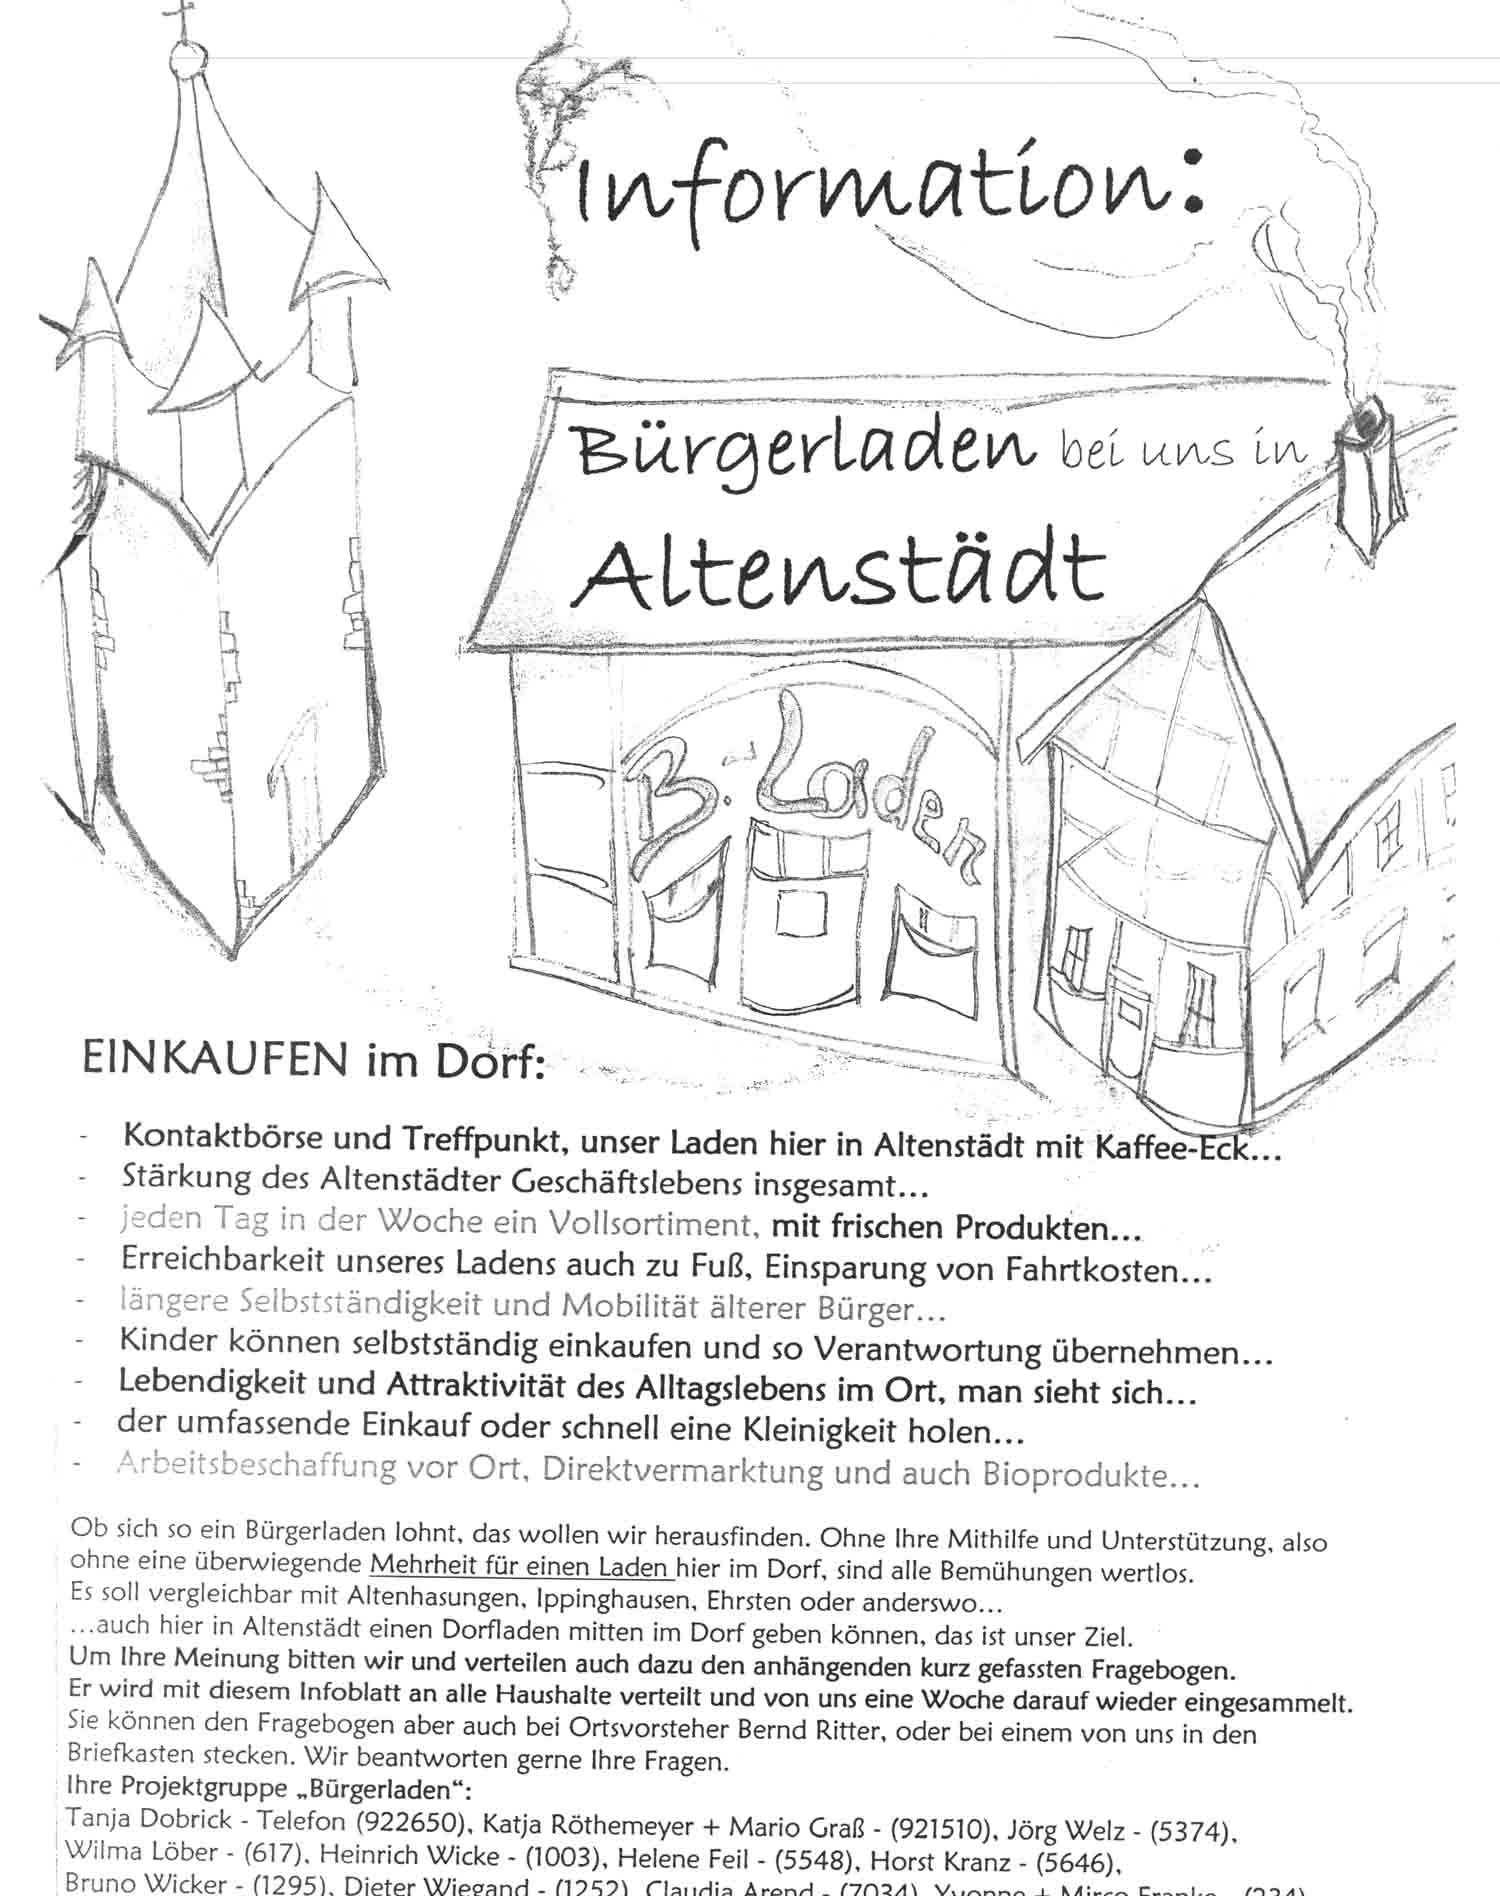 Information:
Bürgerladen bei uns in
Altenstädt
B.-Laden
EINKAUFEN im Dorf:
- Kontaktbörse und Treffpunkt, unser Laden hier in Altenstädt mit Kaffee-Eck...
- Stärkung des Altenstädter Geschäftslebens insgesamt...
- jeden Tag in der Woche ein Vollsortiment, mit frischen Produkten...
- Erreichbarkeit unseres Ladens auch zu Fuß, Einsparung von Fahrtkosten...
- längere Selbstständigkeit und Mobilität älterer Bürger...
- Kinder können selbstständig einkaufen und so Verantwortung übernehmen...
- Lebendigkeit und Attraktivität des Alltagslebens im Ort, man sieht sich...
- der umfassende Einkauf oder schnell eine Kleinigkeit holen...
- Arbeitsbeschaffung vor Ort, Direktvermarktung und auch Bioprodukte...
Ob sich so ein Bürgerladen lohnt, das wollen wir herausfinden. Ohne Ihre Mithilfe und Unterstützung, also
ohne eine überwiegende Mehrheit für einen Laden hier im Dorf, sind alle Bemühungen wertlos.
Es soll vergleichbar mit Altenhasungen, Ippinghausen, Ehrsten oder anderswo...
...auch hier in Altenstädt einen Dorfladen mitten im Dorf geben können, das ist unser Ziel.
Um Ihre Meinung bitten wir und verteilen auch dazu den anhängenden kurz gefassten Fragebogen.
Er wird mit diesem Infoblatt an alle Haushalte verteilt und von uns eine Woche darauf wieder eingesammelt.
Sie können den Fragebogen aber auch bei Ortsvorsteher Bernd Ritter, oder bei einem von uns in den
Briefkasten stecken. Wir beantworten gerne Ihre Fragen.
Ihre Projektgruppe „Bürgerladen“:
Tanja Dobrick - Telefon (922650), Katja Röthemeyer + Mario Graß - (921510), Jörg Welz - (5374),
Wilma Löber - (617), Heinrich Wicke - (1003), Helene Feil - (5548), Horst Kranz - (5646),
Bruno Wicker - (1295), Dieter Wiegand - (1252), Claudia Arend - (7034), Yvonne + Mirco Franke - (234)